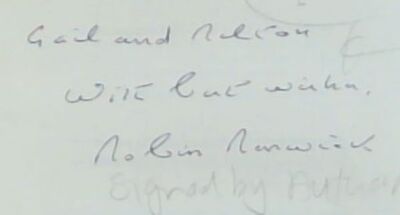 Gail and Milton
With best wishes.
Robin Renwick
Signed by Author